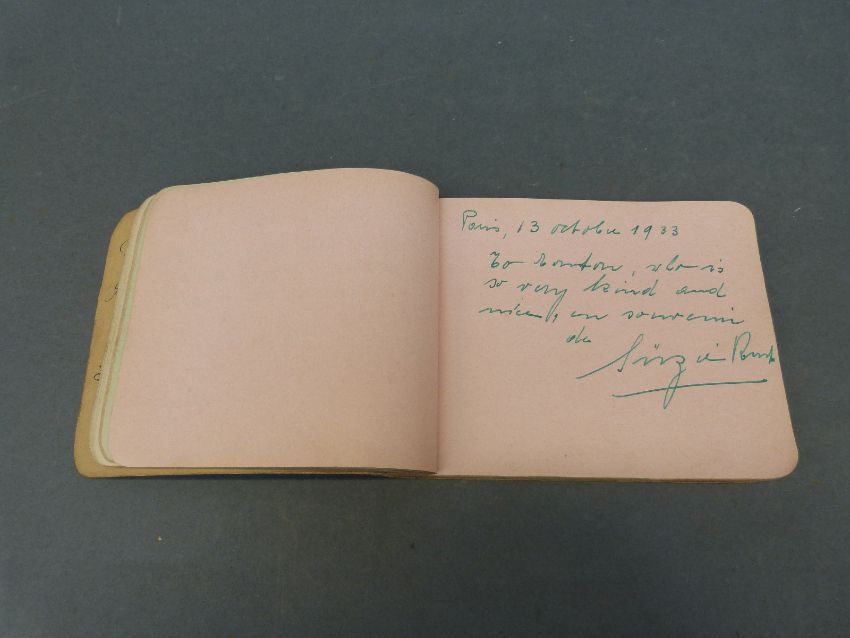 Paris, 13 octobre 1933
To who is
so very kind and
nice, en souvenir
de